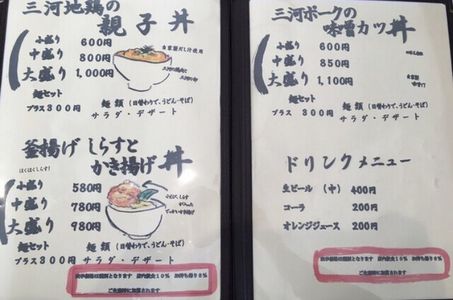 三河地鶏の
親子丼
小盛り 600円
中盛り 800円
大盛り 1,000円
麺セット
プラス300円
麺類(日替わりで、うどん・そば)
サラダ・デザート
釜揚げしらすと
かき揚げ丼
小盛り 580円
中盛り 780円
大盛り 980円
麺セット
プラス300円
麺類(日替わりで、うどん・そば)
サラダ・デザート
三河ポークの
味噌カツ丼
小盛り 600円
中盛り 850円
大盛り 1,100円
麺セット
プラス300円
麺類(日替わりで、うどん・そば)
サラダ・デザート
ドリンクメニュー
生ビール (中) 400円
コーラ 200円
オレンジジュース 200円